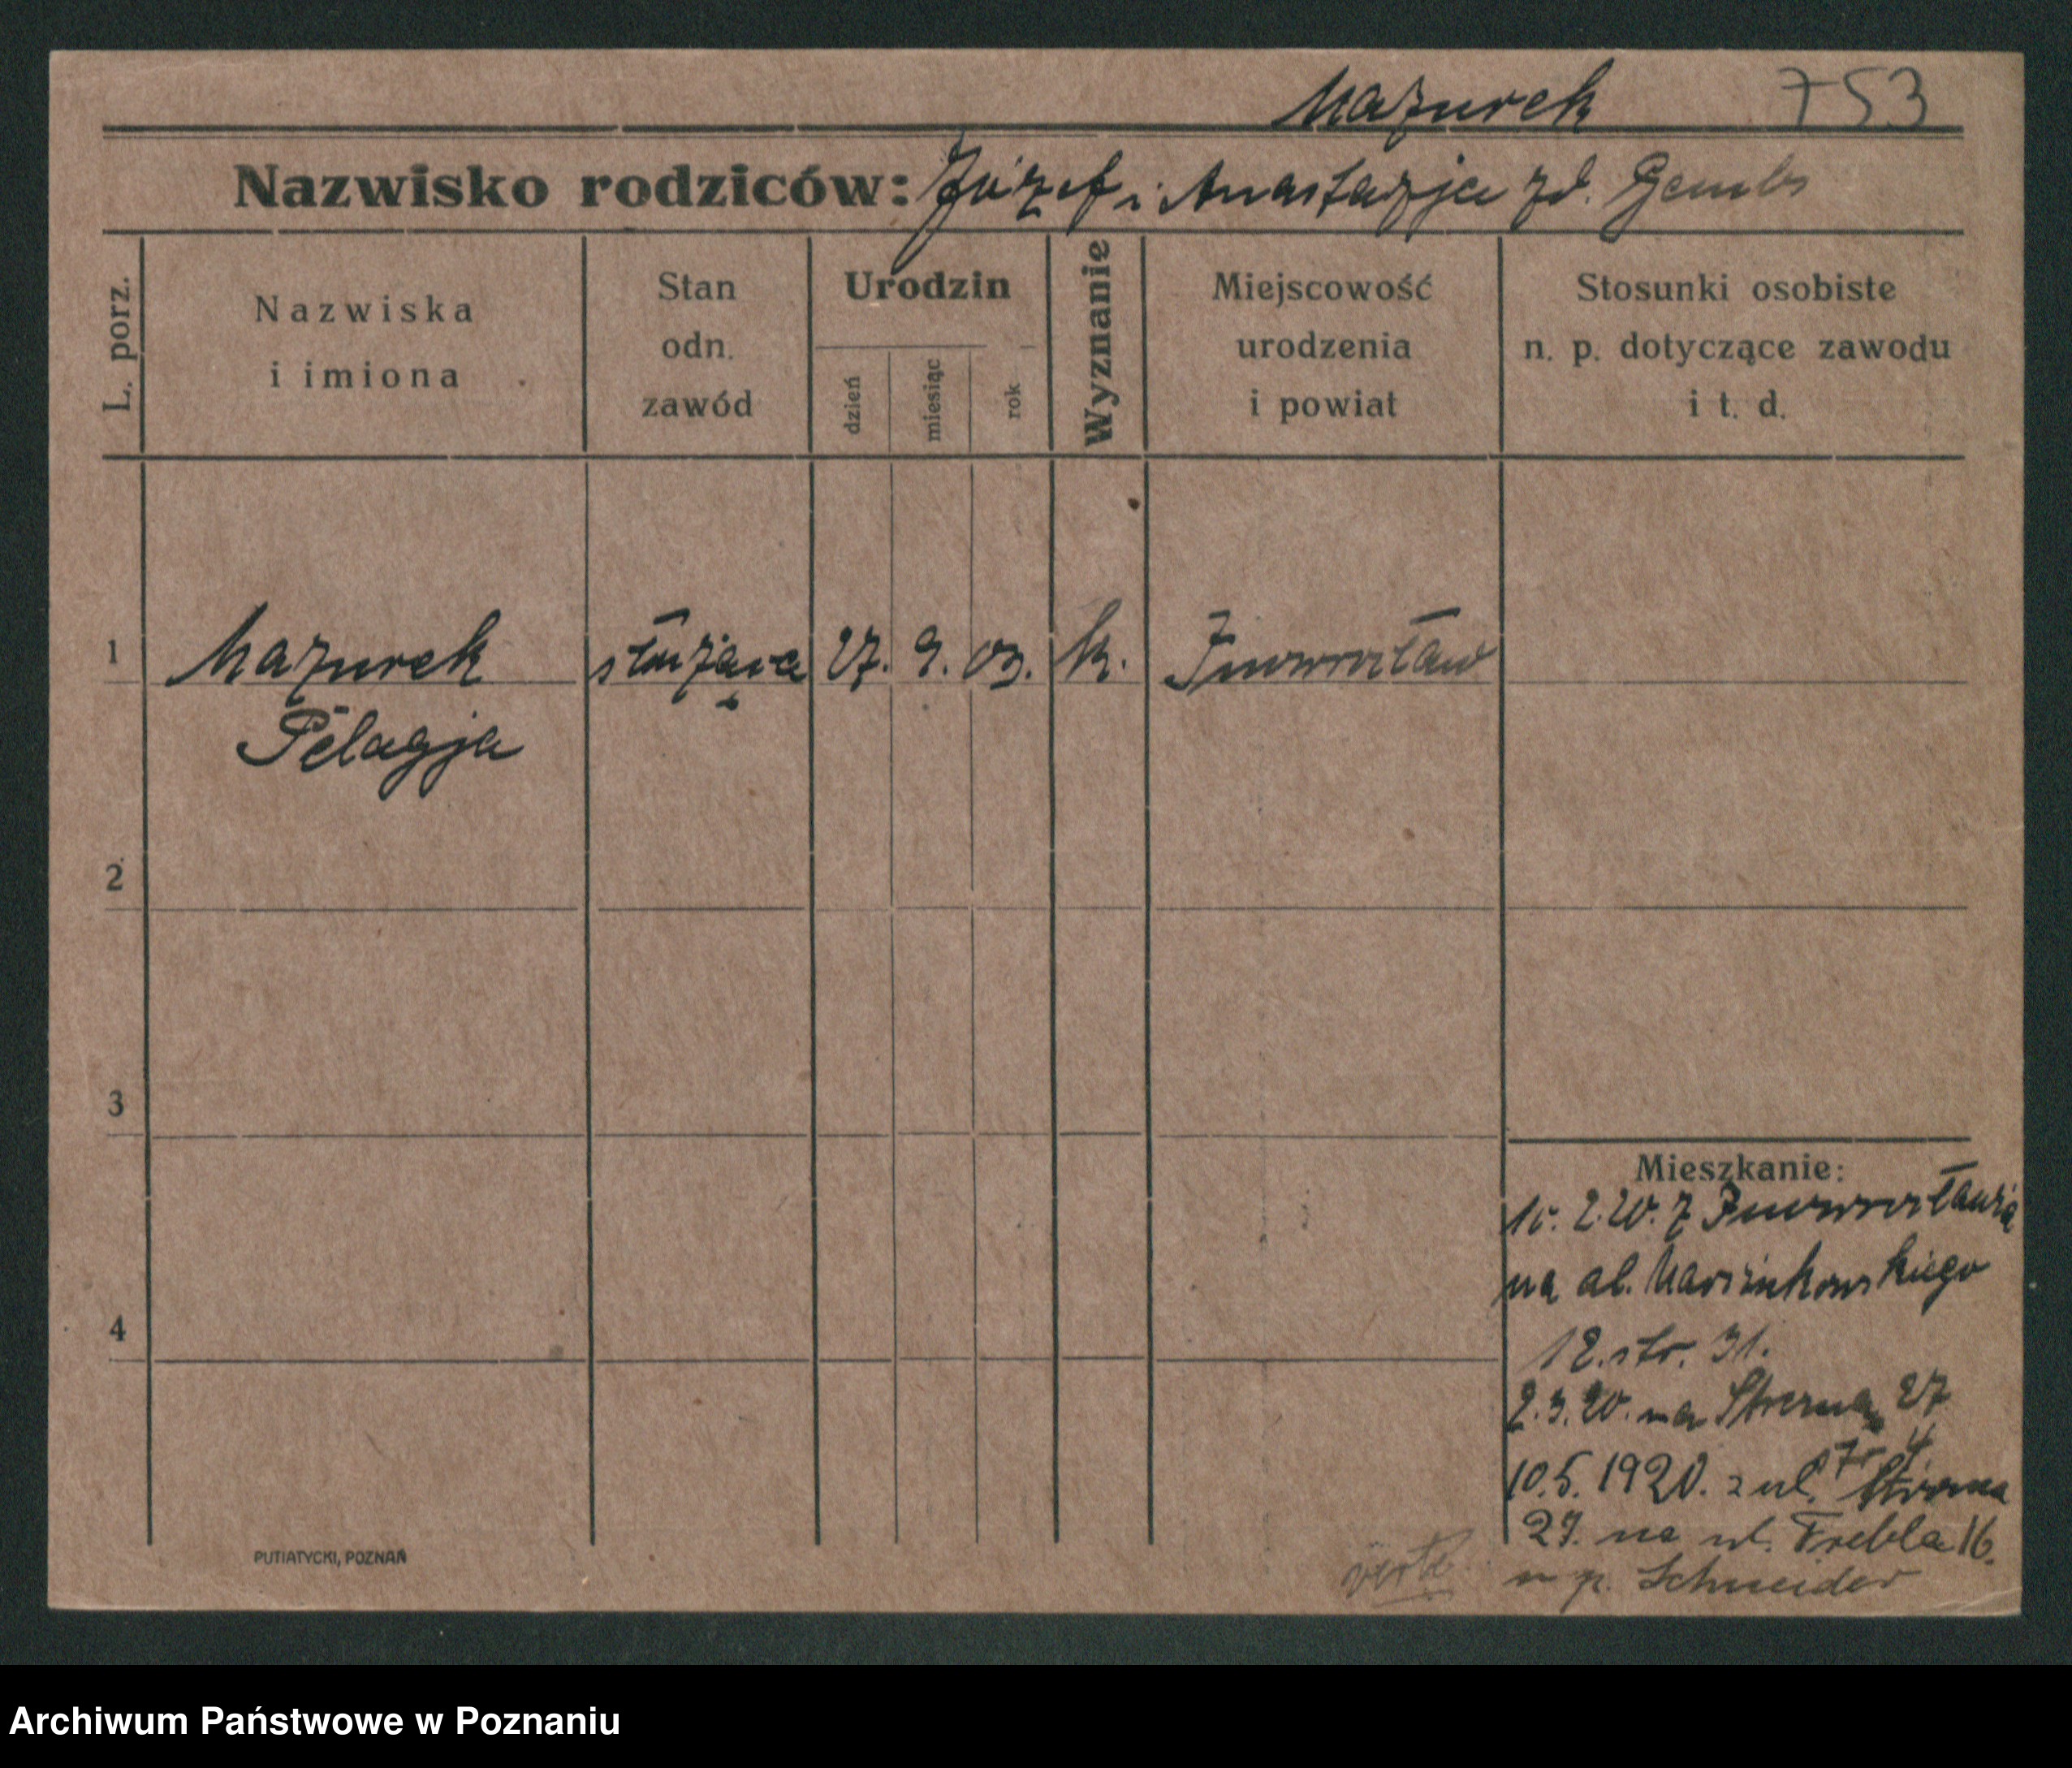 Mazurek 753
Nazwisko rodziców: Józef i Anastazja zd. Gembs
L. porz.
Nazwiska
i imiona
Stan
odn.
zawód
Urodzin
dzień
miesiąc
rok
Wyznanie
Miejscowość
urodzenia
i powiat
Stosunki osobiste
n. p. dotyczące zawodu
i t. d.
1 Mazurek służąca 27. 9. 03. k. Inowrocław
Pelagja
2
3
4
Mieszkanie:
2.20. z Inowrocławia
na al. Marcinkowskiego
12. str. 31.
2.3.20. na 27
10.5.1920. z ul.
27. na ul. Frebla 16.
u p. Schneider
verte
PUTIATYCKI, POZNAŃ
Archiwum Państwowe w Poznaniu